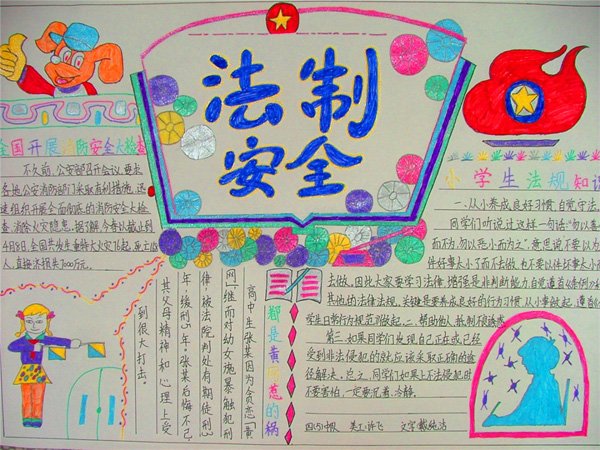 法制
安全
全国开展消防安全大检查
不久前,公安部召开会议,要求
各地公安消防部门采取有利措施,迅
速组织开展全面彻底的消防安全大检
查,消除火灾隐患。据了解,今春以截止到
4月8日,全国共发生重特大火灾76起,死亡
人,直接冰损失7000万元。
小学生法规知识
一、从小养成良好习惯,自觉守法。
同学们听说过这样一句话:"勿以善小
而不为,勿以恶小而为之"。意思说不要以为
件好事太小了而不去做,也不要以件坏事太小
去做。因此大家要学习法律,增强是非判断能力,自觉遵守
其他的法律规范。关键是要养成良好的行为习惯,从小事做起,遵
学生日常行为规范》做起。二、帮助他人,抵制不良诱惑
第三、如果同学们发现自己正在或已经
受到非法侵犯的就应该采取正确的途
径解决。总之,同学们如果上不法侵犯时
不要害怕,一定要沉着、冷静。
都是黄网惹的祸
高中生张某因为贪恋"黄
网",继而对幼女施暴触犯刑
律,被法院判处有期徒刑3
年,缓刑5年,张某后悔不已,
其父母精神和心理上受
到很大打击。
四(5)中队 美工:许飞 文字:戴纯洁